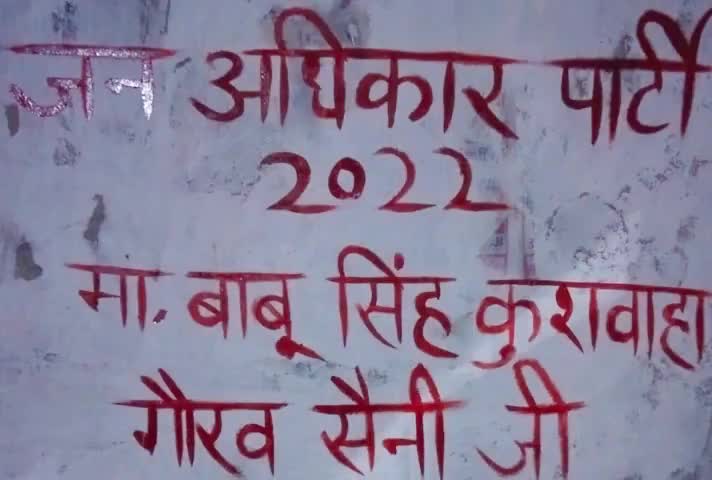 जन अधिकार पार्टी
2022
मा. बाबू सिंह कुशवाहा
गौरव सैनी जी